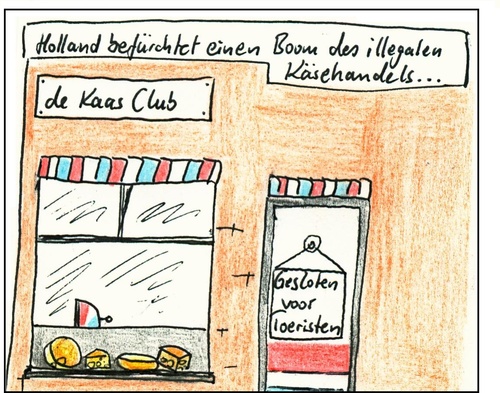 Holland befürchtet einen Boom des illegalen
Käsehandels...
de Kaas Club
Gesloten
voor
Toeristen